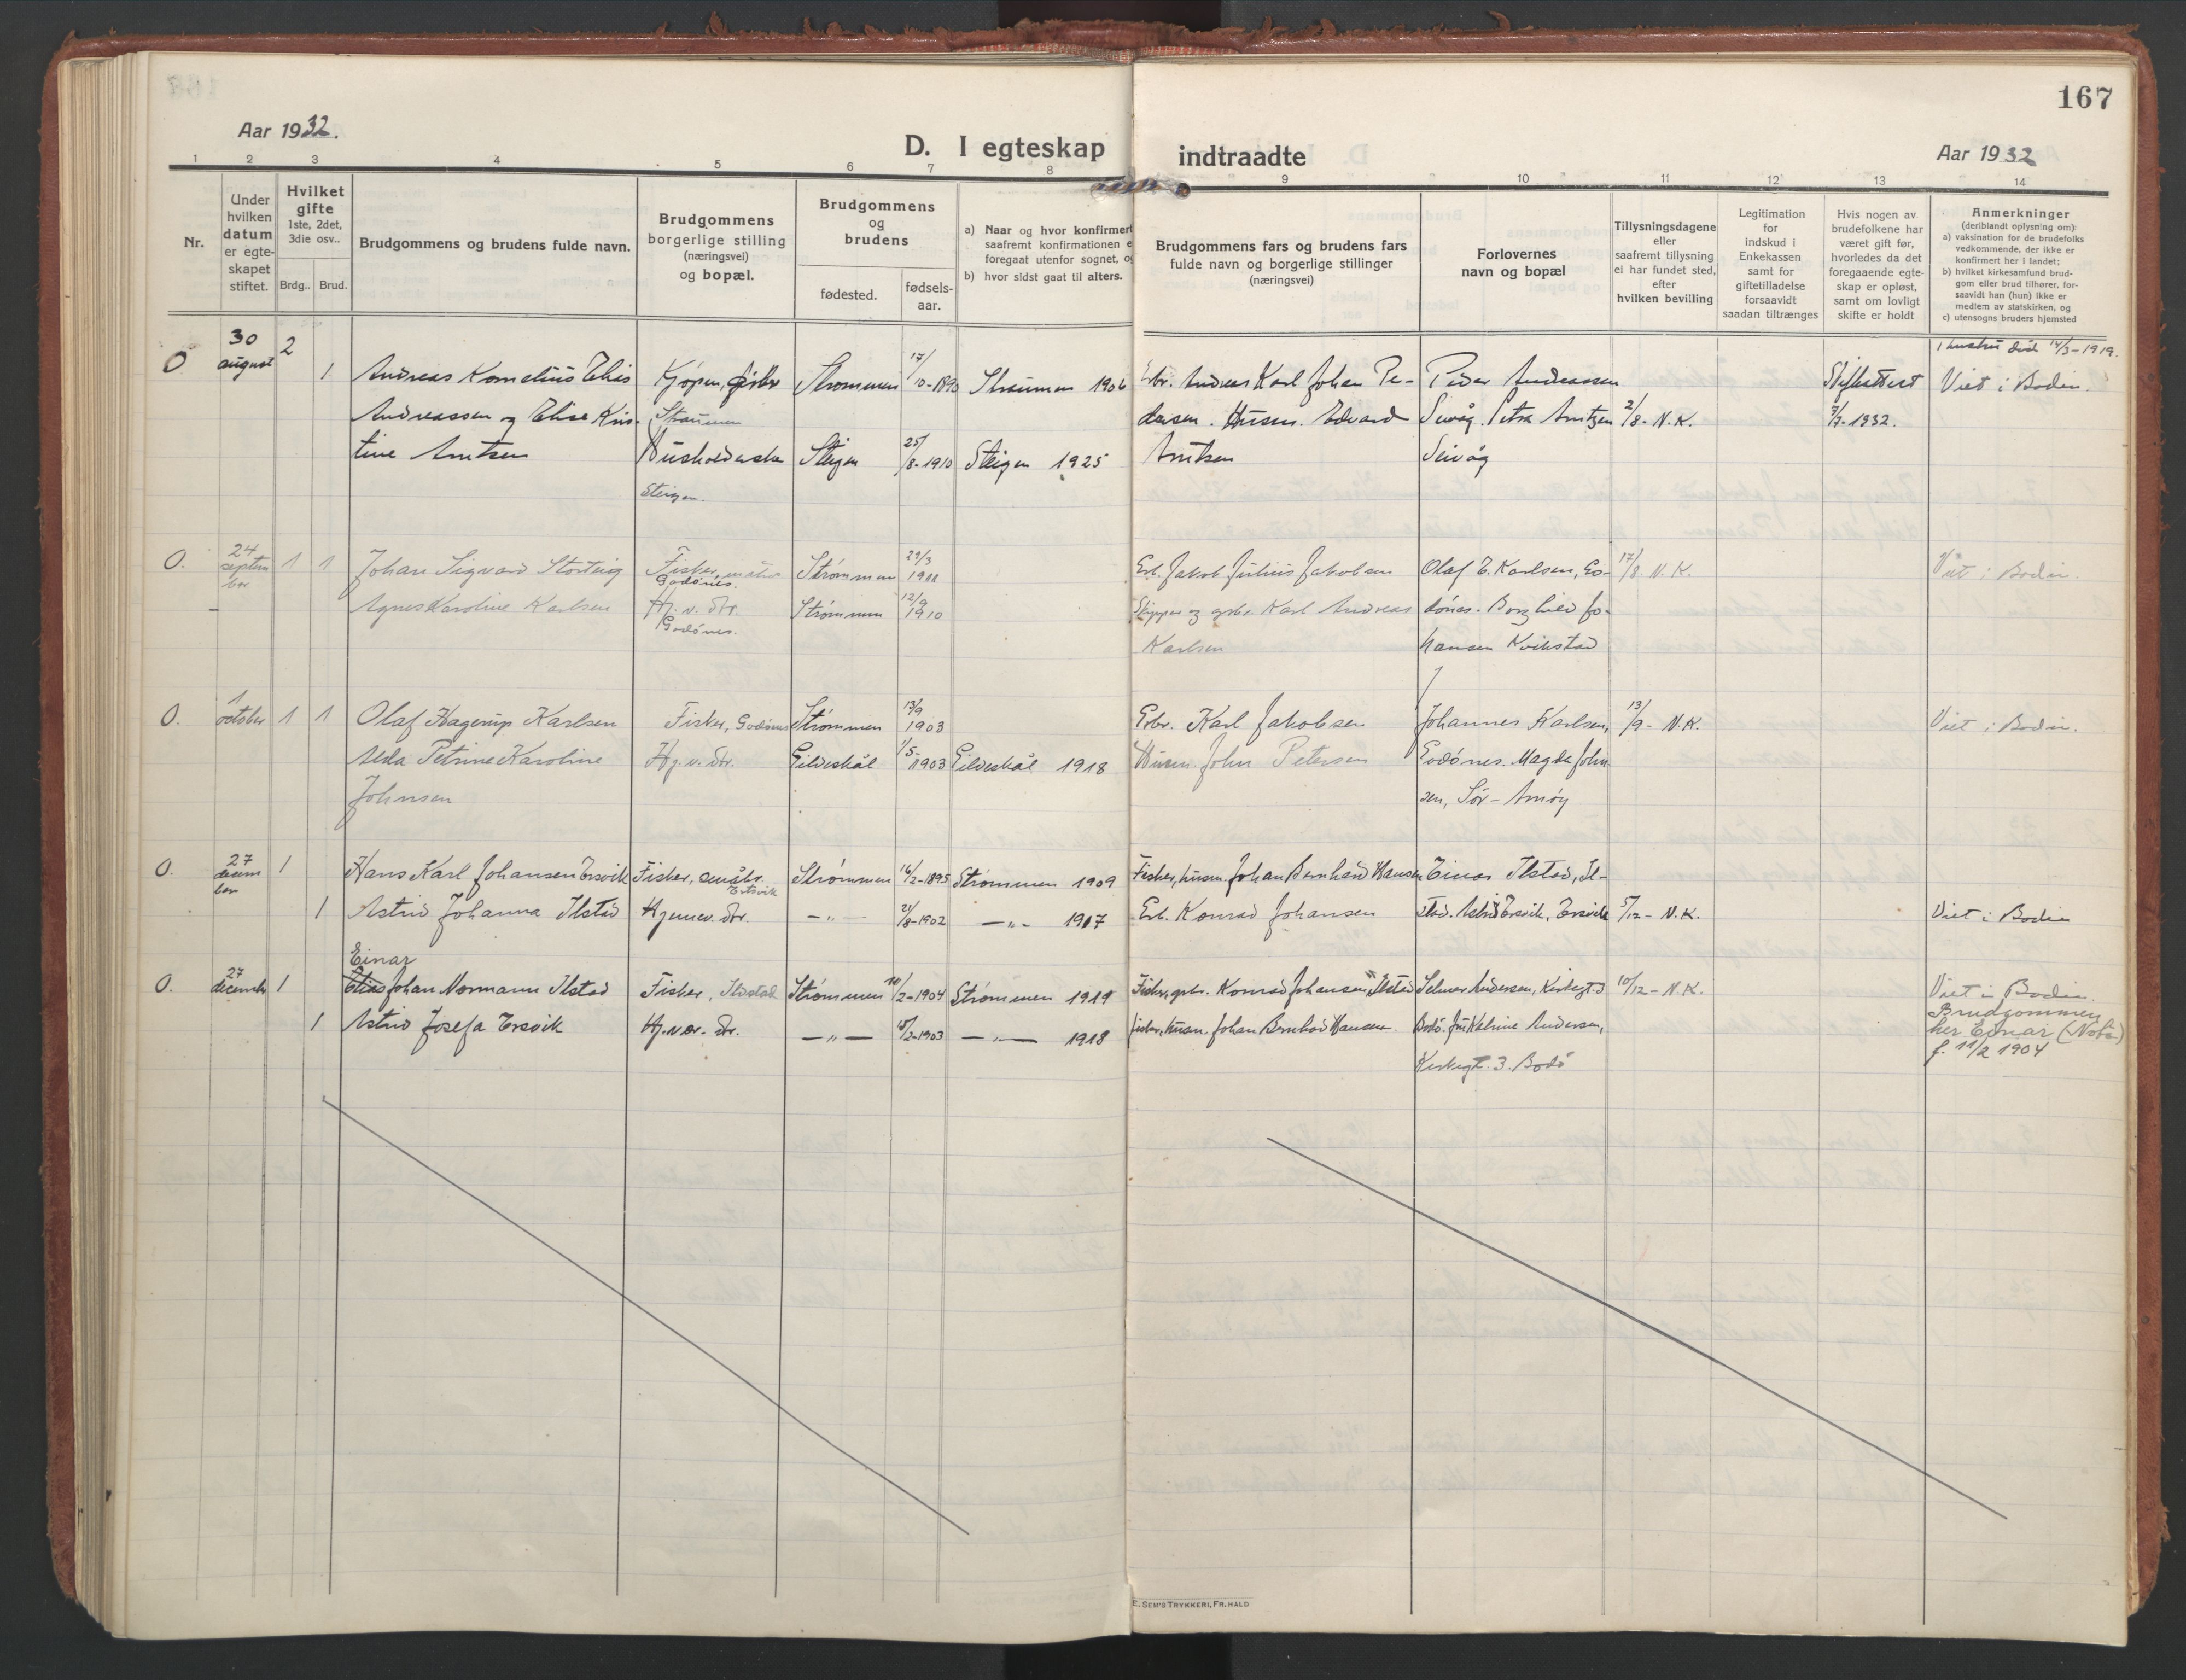 167
Aar 1932.
D. I egteskap indtraadte
Aar 1932
1 2 3 4 5 6 7 8 9 10 11 12 13 14
Nr.
Under hvilken datum er egte-skapet stiftet.
Hvilket gifte 1ste, 2det, 3die osv..
Brdg.. Brud.
Brudgommens og brudens fulde navn.
Brudgommens borgerlige stilling (næringsvei) og bopæl.
Brudgommens og brudens
fødested.
fødsels-aar.
a) Naar og hvor konfirmert
saafremt konfirmationen
foregaat utenfor sognet,
b) hvor sidst gaat til alters.
Brudgommens fars og brudens fars
fulde navn og borgerlige stillinger
(næringsvei)
Forlovernes
navn og bopæl
Tillysningsdagene
eller
saafremt tillysning
ei har fundet sted,
efter
hvilken bevilling
Legitimation
for
indskud i
Enkekassen
samt for
giftetilladelse
forsaavidt
saadan tiltrænges
Hvis nogen av
brudefolkene har
været gift før,
hvorledes da det
foregaaende egte-
skap er opløst,
samt om lovligt
skifte er holdt
Anmerkninger
(deriblandt oplysning om):
a) vaksination for de brudefolks
vedkommende, der ikke er
konfirmert her i landet;
b) hvilket kirkesamfund brud-
gom eller brud tilhører, for-
saavidt han (hun) ikke er
medlem av statskirken, og
c) utensogns bruders hjemsted
O 30 august 2 1
Andreas Kornelius Elias
Andreassen og Elise Kris-
tine Arntsen
Kjøpm,
Straumen
Husholderske
Steigen.
Strømmen 17/10-1890 Straumen 1906
Steigen 25/8-1910 Steigen 1925
Andreas Karl Johan Pe-
dersen. Husm. Edvard
Arntsen
Peder Andreassen
Seivåg. Petra Arntzen
Seivåg
2/8- N.K.
Skifteattest
7/7-1932.
1 hustru død 14/3-1919.
Viet i Bodin.
O. 24 septem ber 1 1
Johan Sigvard Storteig
Agnes Karoline Karlsen
Fisker,
Godønes.
Hj. v. dtr.
Godønes.
Strømmen 29/3 1911
Strømmen 12/9 1910
Jakob Julius Jakobsen
Skipper og gbr. Karl Andreas
Karlsen
Olaf E. Karlsen, Go-
dønes. Borghild Jo-
hansen Kvikstad
17/8. N.K.
Viet i Bodin.
O. 1 october 1 1
Olaf Hagerup Karlsen
Alda Petrine Karoline
Johnsen
Fisker, Godønes
Hj. v. dtr.
Strømmen 13/9 1903
Gildeskål 1/5-1903 Gildeskål 1918
Gbr. Karl Jakobsen
Husm. John Petersen
Johannes Karlsen,
Godønes. Magda John-
sen, Sør-Arnøy
13/9- N.K.
Viet i Bodin.
O. 27 decem ber 1
Hans Karl Johansen Ersvik
Fisker, småbr.
Ertsvik
Strømmen 16/2-1895 Strømmen 1909
Fisker, husm. Johan Bernhard Hansen
Einar Ilstad, Il-
1 Astrid Johanna Ilstad
Hjemmev. dtr.
-„- 21/8-1902 -„- 1917
Konrad Johansen
stad. Astrid Ersvik, Ersvik
5/12- N.K.
Viet i Bodin
Einar
O. 27 december 1 Elias Johan Normann Ilstad
Fisker, Ildstad
Strømmen 11/2-1904 Strømmen 1919
Fisker, gbr. Konrad Johansen, Ilstad
Selmer Andersen, Kirkegt. 3
10/12- N.K.
1 Astrid Josefa Ersvik
Hj. vær. dtr.
-„- 15/2-1903 -„- 1918
Fisker, husm. Johan Bernhard Hansen
Bodø. Katrine Andersen,
Kirkegt. 3. Bodø
Viet i Bodin.
Brudgommen
her Einar (Nota)
f. 11/2 1904
E. SEM'S TRYKKERI, FR.HALD